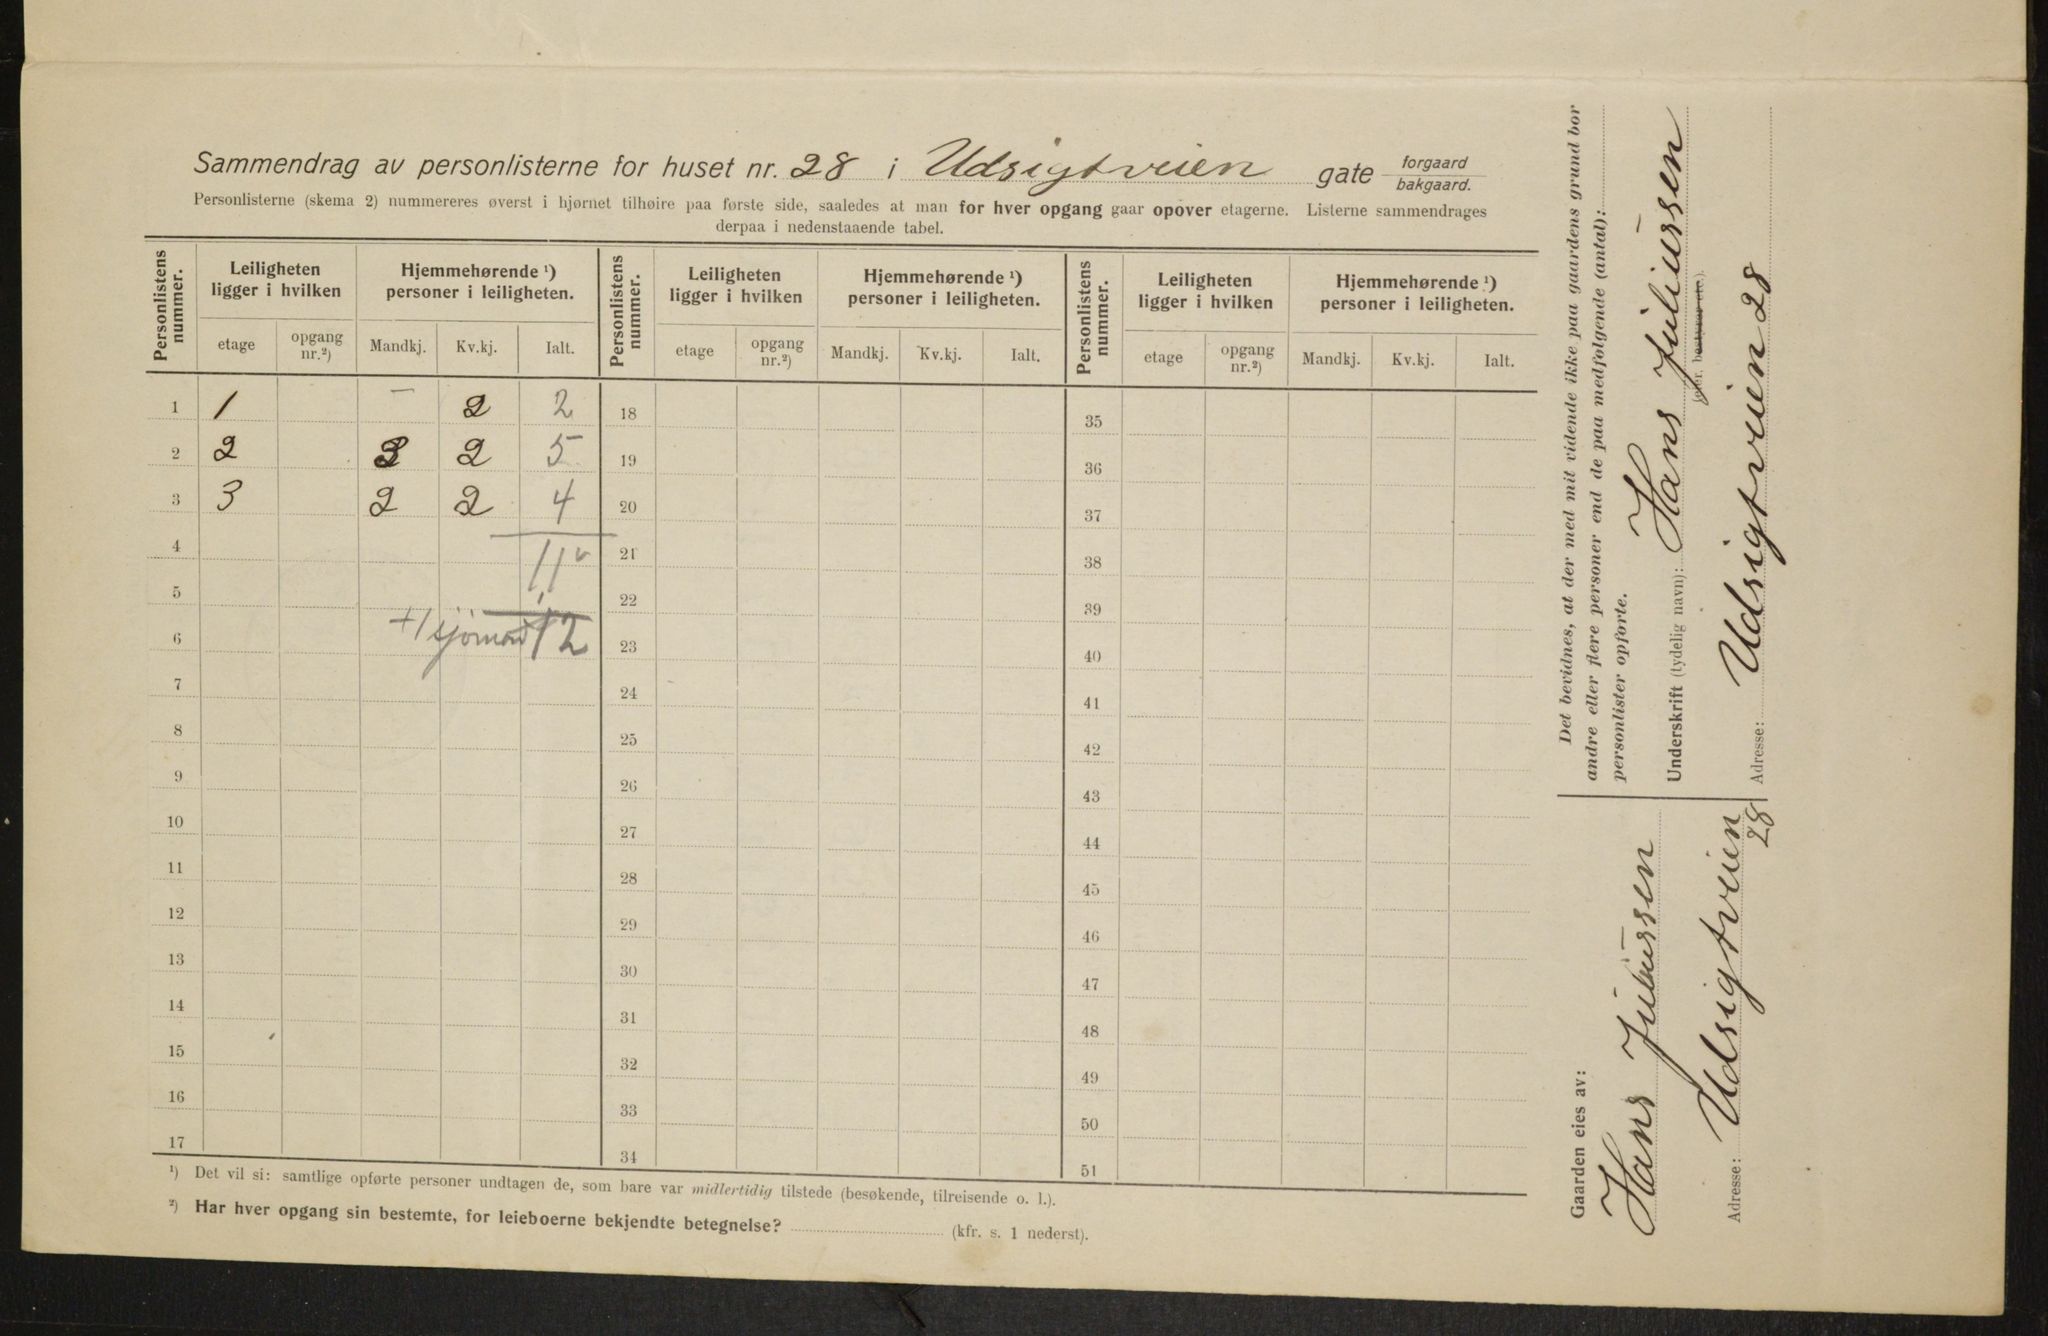 Sammendrag av personlisterne for huset nr. 28 i Udsigtveien gate forgaard bakgaard.
Personlisterne (skema 2) nummereres øverst i hjørnet tilhøire paa første side, saaledes at man for hver opgang gaar opover etagerne. Listerne sammendrages
derpaa i nedenstaaende tabel.
Personlistens nummer. Leiligheten ligger i hvilken Hjemmehørende ¹) personer i leiligheten. Personlistens nummer. Leiligheten ligger i hvilken Hjemmehørende ¹) personer i leiligheten. Personlistens nummer. Leiligheten ligger i hvilken Hjemmehørende ¹) personer i leiligheten.
etage opgang nr.²) Mandkj. Kv.kj. Ialt. etage opgang nr.²) Mandkj. Kv.kj. Ialt. etage opgang nr.²) Mandkj. Kv.kj. Ialt.
1 1 – 2 2 18 35
2 2 3 2 5 19 36
3 3 2 2 4 20 37
4 11 21 38
5 22 39
6 +1 12 23 40
7 24 41
8 25 42
9 26 43
10 27 44
11 28 45
12 29 46
13 30 47
14 31 48
15 32 49
16 33 50
17 34 51
¹) Det vil si: samtlige opførte personer undtagen de, som bare var midlertidig tilstede (besøkende, tilreisende o. l.).
²) Har hver opgang sin bestemte, for leieboerne bekjendte betegnelse? (kfr. s. 1 nederst).
Det bevidnes, at der med mit vidende ikke paa gaardens grund bor
andre eller flere personer end de paa medfølgende (antal):
personlister opførte.
Underskrift (tydelig navn): Hans Juliussen
(eier, bestyrer etc.).
Adresse: Udsigtveien 28
Gaarden eies av:
Hans Juliussen
Adresse: Udsigtveien
28